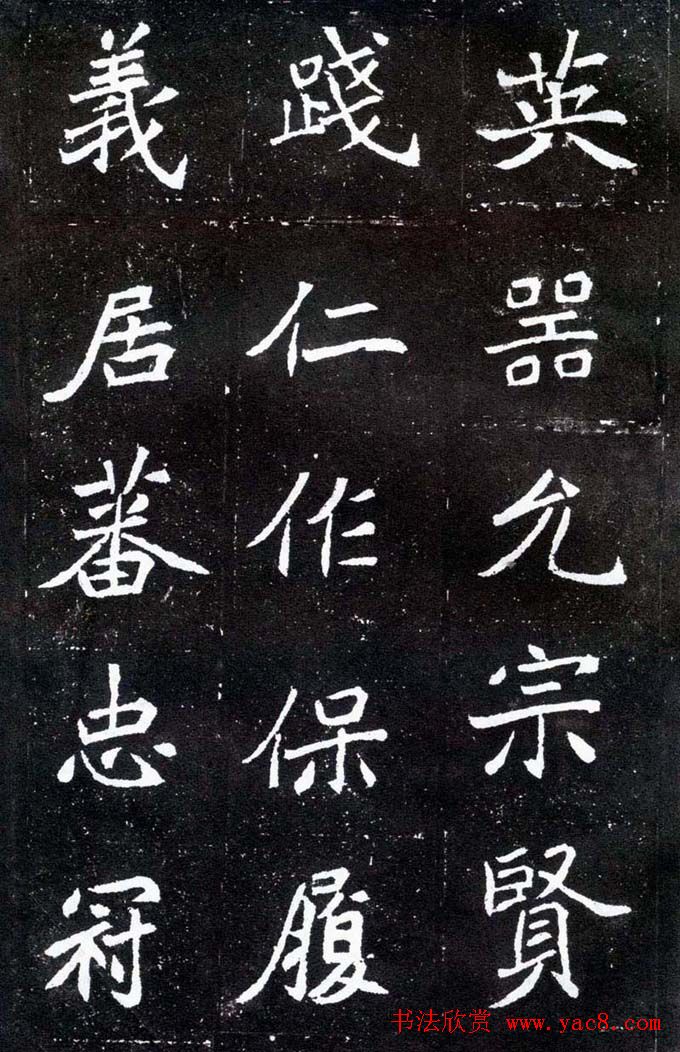 英器允宗賢
踐仁作保履
義居蕃忠冠
书法欣赏 www.yac8.com